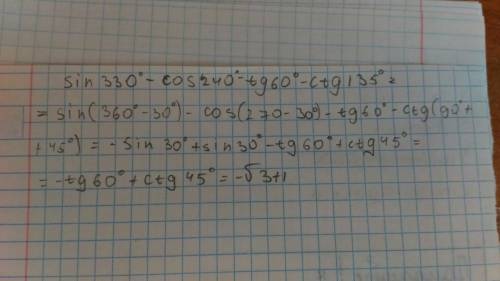 sin 330° - cos 240° - tg 60° - ctg 135° =
= sin(360° - 30°) - cos(270 - 30°) - tg 60° - ctg(90° +
+ 45°) = - sin 30° + sin 30° - tg 60° + ctg 45° =
= - tg 60° + ctg 45° = -√3 + 1